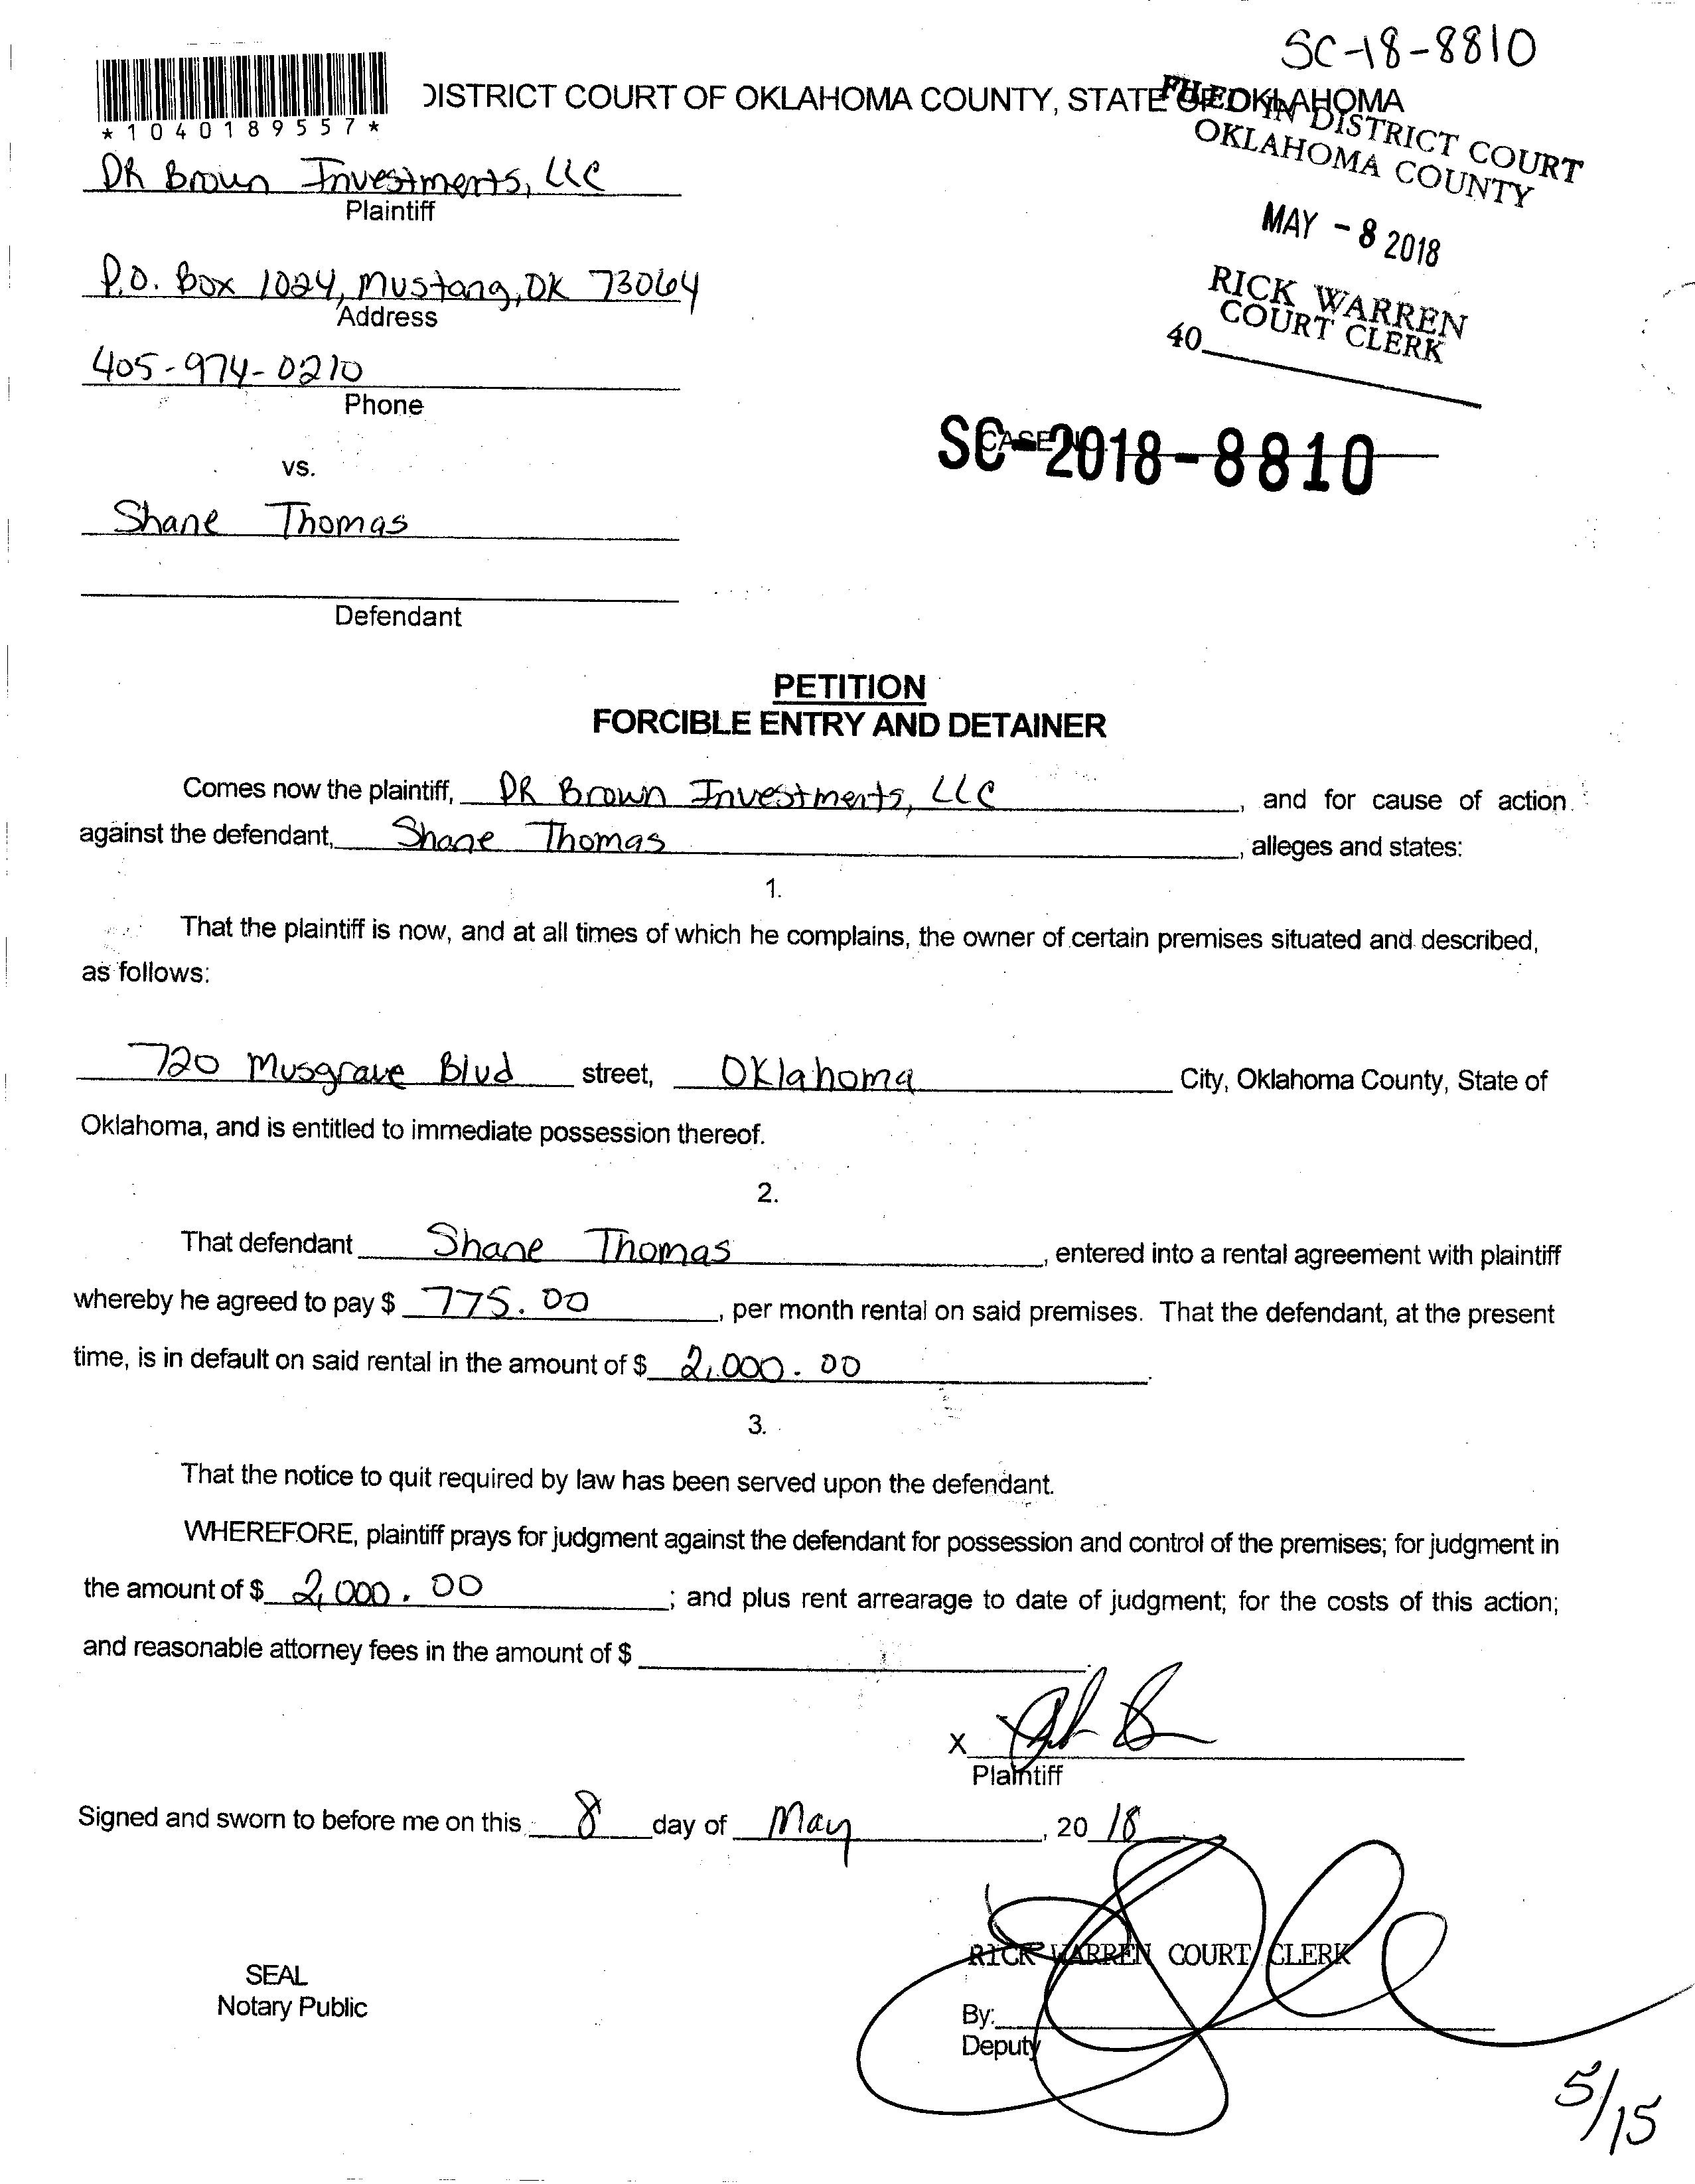 SC-18-8810
DISTRICT COURT OF OKLAHOMA COUNTY, STATE OF OKLAHOMA
*1040189557*
FILED IN DISTRICT COURT
OKLAHOMA COUNTY
DR Brown Investments, LLC
Plaintiff
MAY - 8 2018
P.O. Box 1024, Mustang, OK 73064
Address
RICK WARREN
COURT CLERK
40
405-974-0210
Phone
SC-2018-8810
vs.
Shane Thomas
Defendant
PETITION
FORCIBLE ENTRY AND DETAINER
Comes now the plaintiff, DR Brown Investments, LLC, and for cause of action
against the defendant, Shane Thomas, alleges and states:
1.
That the plaintiff is now, and at all times of which he complains, the owner of certain premises situated and described,
as follows:
720 Musgrave Blvd street, Oklahoma City, Oklahoma County, State of
Oklahoma, and is entitled to immediate possession thereof.
2.
That defendant Shane Thomas, entered into a rental agreement with plaintiff
whereby he agreed to pay $ 775.00, per month rental on said premises. That the defendant, at the present
time, is in default on said rental in the amount of $ 2,000.00.
3.
That the notice to quit required by law has been served upon the defendant.
WHEREFORE, plaintiff prays for judgment against the defendant for possession and control of the premises; for judgment in
the amount of $ 2,000.00; and plus rent arrearage to date of judgment; for the costs of this action;
and reasonable attorney fees in the amount of $
X
Plaintiff
Signed and sworn to before me on this 8 day of May, 20 18
RICK WARREN COURT CLERK
SEAL
Notary Public
By:
Deputy
5/15